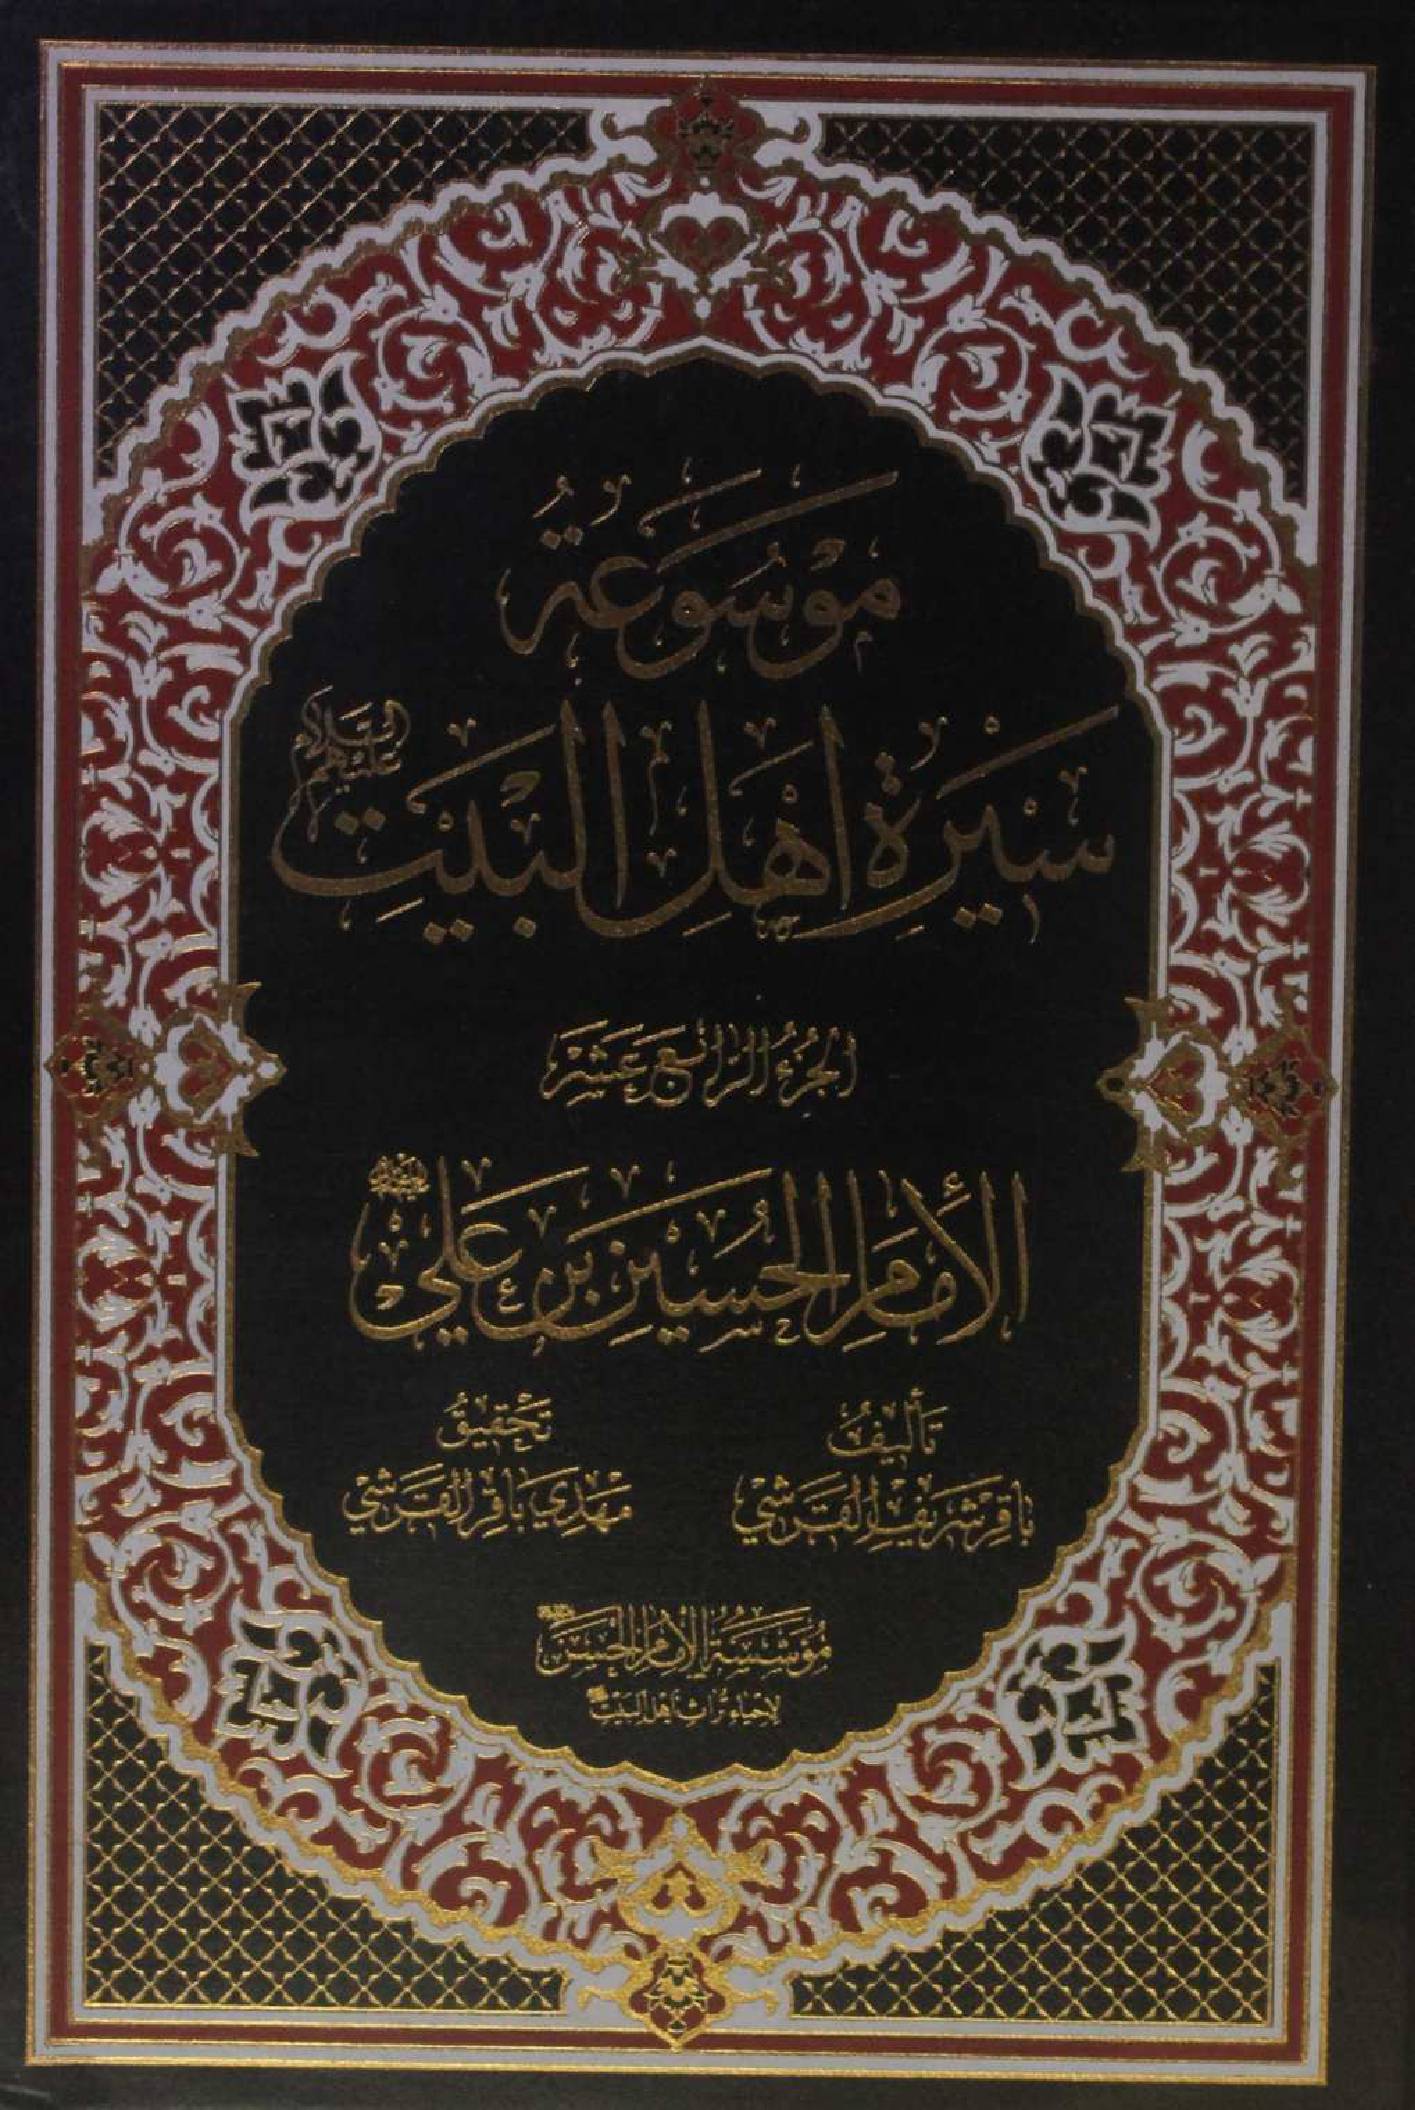 مَوْسُوعَةُ
سِيرَةِ اَهْلِ البَيْتِ عَلَيْهِمُ السَّلَام
الجُزْءُ الرَّابِعَ عَشَرَ
الإمَامِ الحُسَيْنِ بنِ عَلِيّ
تَأليفُ
بَاقِر شَرِيف القَرَشِي
تَحْقِيقُ
مَهْدِي بَاقِر القَرَشِي
مُؤسَّسَةُ الإمَامِ الحَسَن
لإحيَاءِ تُرَاثِ أَهْلِ البَيْت